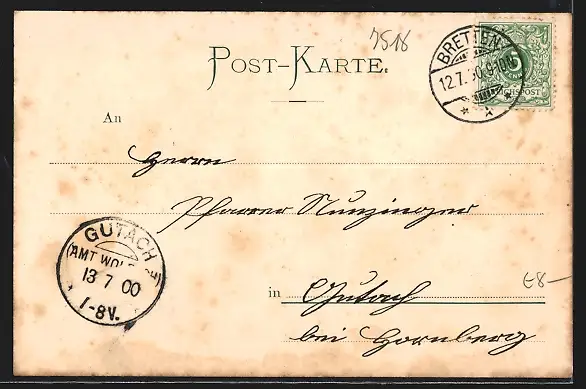 7516
POST-KARTE.
BRETTEN
12.7.00.9-10N
REICHSPOST
An
Herrn
Pfarrer Nunzinger
GUTACH
(AMT WOLF
13 7 00
7-8V.
in Gutach
bei Hornberg
E8-